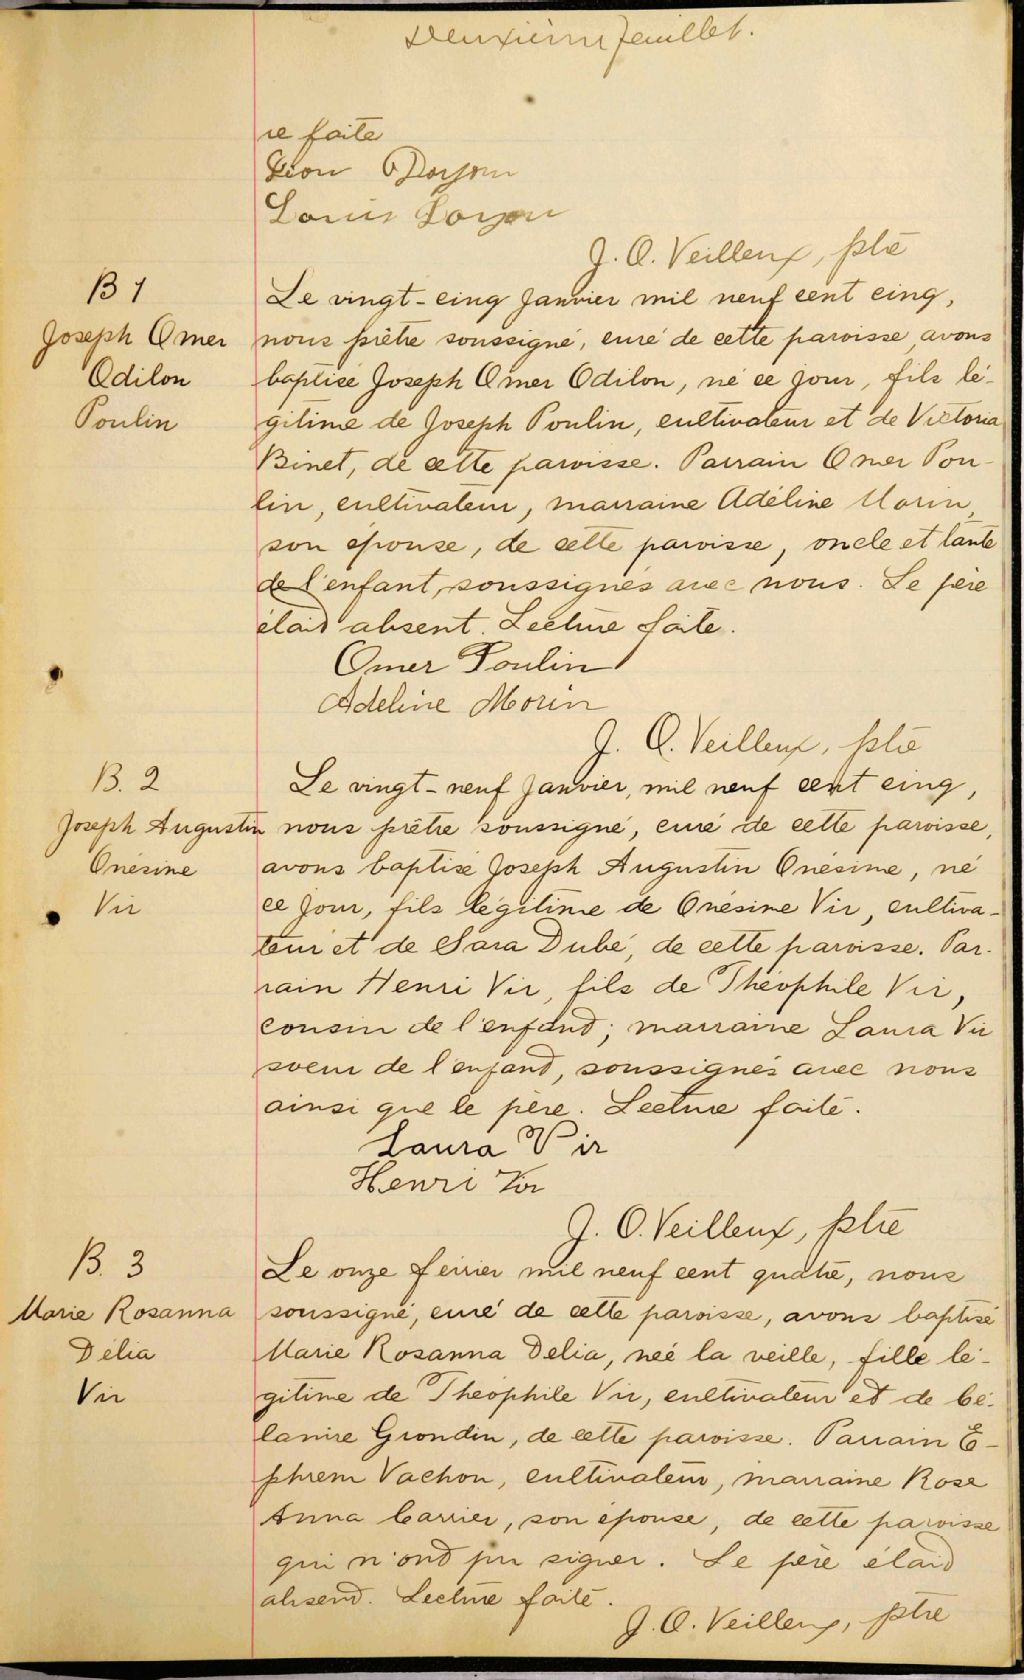 Deuxième feuillet.
re faite
Léon Doyon
Louis Doyon
J. O. Veilleux, ptre
B 1
Joseph Omer
Odilon
Poulin
Le vingt-cinq janvier mil neuf cent cinq,
nous prêtre soussigné, curé de cette paroisse, avons
baptisé Joseph Omer Odilon, né ce jour, fils lé-
gitime de Joseph Poulin, cultivateur et de Victoria
Binet, de cette paroisse. Parrain Omer Pou-
lin, cultivateur, marraine Adéline Morin,
son épouse, de cette paroisse, oncle et tante
de l'enfant, soussignés avec nous. Le père
était absent. Lecture faite.
Omer Poulin
Adeline Morin
J. O. Veilleux, ptre
B. 2
Joseph Augustin
Onésime
Vir
Le vingt-neuf janvier, mil neuf cent cinq,
nous prêtre soussigné, curé de cette paroisse,
avons baptisé Joseph Augustin Onésime, né
ce jour, fils légitime de Onésime Vir, cultiva-
teur et de Sara Dubé, de cette paroisse. Par-
rain Henri Vir, fils de Théophile Vir,
cousin de l'enfant; marraine Laura Vir
soeur de l'enfant, soussignés avec nous
ainsi que le père. Lecture faite.
Laura Vir
Henri Vir
J. O. Veilleux, ptre
B. 3
Marie Rosanna
Délia
Vir
Le onze février mil neuf cent quatre, nous
soussigné, curé de cette paroisse, avons baptisé
Marie Rosanna Délia, née la veille, fille lé-
gitime de Théophile Vir, cultivateur et de Cé-
lanire Grondin, de cette paroisse. Parrain E-
phrem Vachon, cultivateur, marraine Rose
Anna Carrier, son épouse, de cette paroisse
qui n'ont pu signer. Le père était
absent. Lecture faite.
J. O. Veilleux, ptre